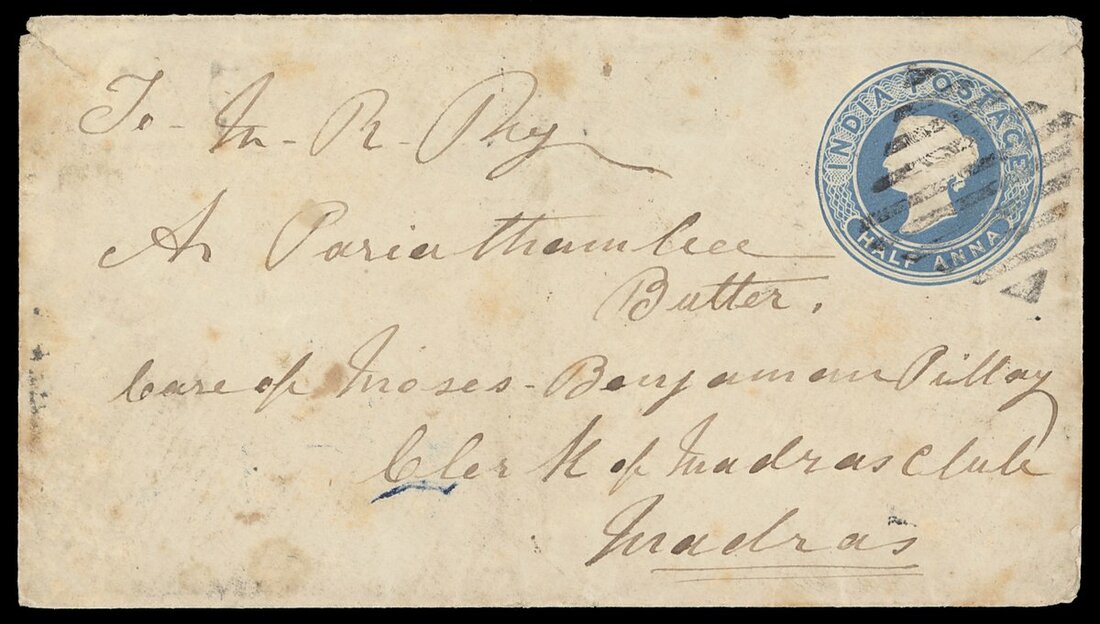 To - M - R - Ry
INDIA POSTAGE
HALF ANNA
A Pariathambee
Butter,
Care of Moses - Benjaman Pillay
Clerk of Madras Club
Madras